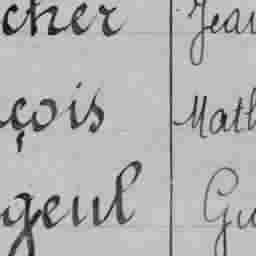 cher Jean
çois Math
geul Gu